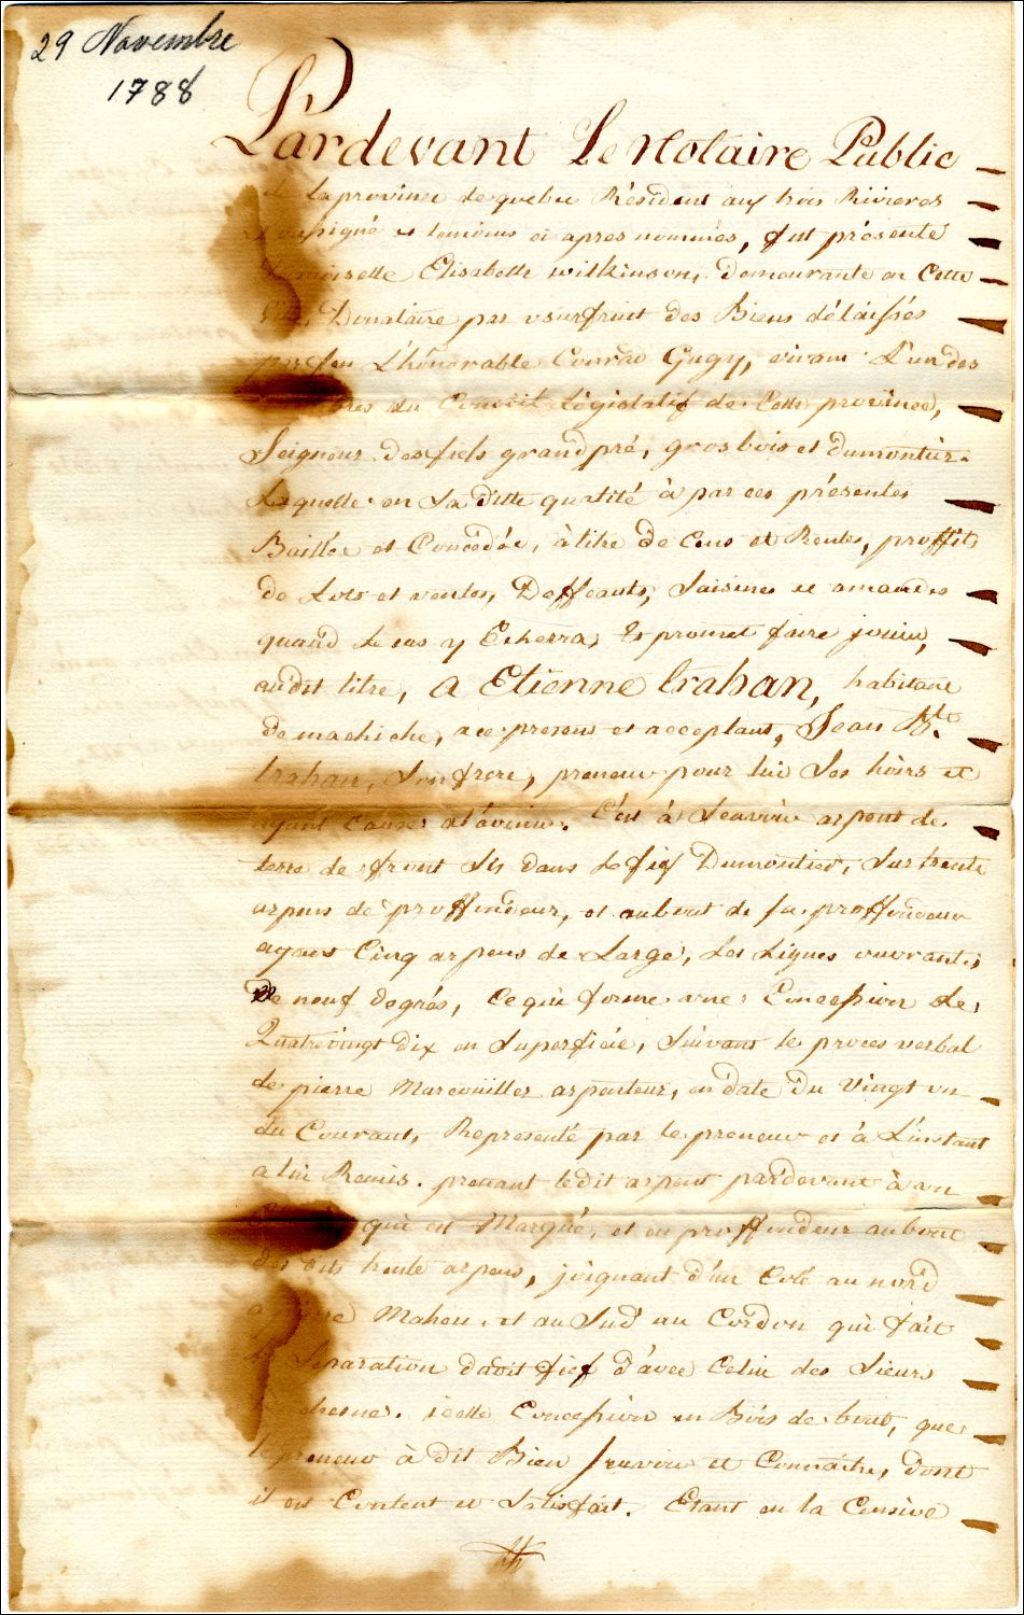 29 Novembre
1788
Pardevant Le Notaire Public
la province de quebec Résident aux trois Rivieres
soussigné et temoins ci apres nommés, fut présente
Demoiselle Elisabette Wilkinson, Demeurante en Cette
Ville, Donataire par usurfruit des Biens délaissés
par feu L'honorable Conrad Gugy, vivant L'un des
membres du Conseil Législatif de Cette province,
Seigneur des fiefs grandpré, grosbois et dumontier.
Laquelle en Sa ditte qualité à par ces présentes
Baillée et Concédée, à titre De Cens et Rentes, proffits
de Lots et ventes, Deffauts, Saisines et amandes
quand Le cas y Echerra, Et promet faire jouir,
audit titre, a Etienne trahan, habitant
de machiche, a ce present et acceptant, Jean Bte.
trahan, Son frere, preneur pour lui Ses hoirs et
ayant Cause a l'avenir. C'est à Scavoir arpent de
terre de front Sis dans Le fief Dumontier, Sur trente
arpens de proffondeur, et au bout de sa proffondeur
ayant Cinq arpens de Large, Les Lignes ouvrantes
De neuf degrés, Ce qui forme une Concession de
Quatrevingt dix en Superficie, Suivant le proces verbal
de pierre Marcouiller arpenteur, en date Du Vingt un
du Courant, Representé par le preneur et à L'instant
a lui Remis. prenant ledit arpent pardevant à un
qui est Marqué, et en proffondeur au bout
des dits trente arpens, joignant d'un Coté au nord
a Maheu, et au Sud au Cordon qui fait
la Separation dudit fief d'avec Celui des Sieurs
. icelle Concession en Bois de bout, que
le preneur à dit Bien scavoir et Connaitre, dont
il est Content et Satisfait. Etant en la Censive